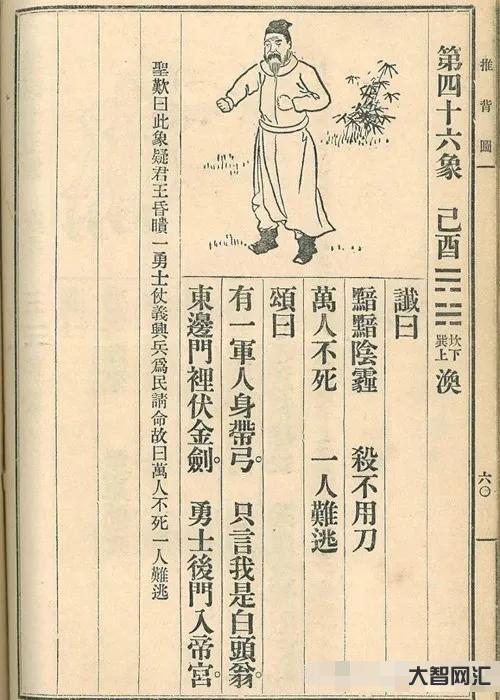 推背圖
第四十六象 己酉 坎下巽上 渙
讖曰
黯黯陰霾 殺不用刀
萬人不死 一人難逃
頌曰
有一軍人身帶弓。 只言我是白頭翁。
東邊門裡伏金劍。 勇士後門入帝宮。
聖歎曰此象疑君王昏瞶一勇士仗義興兵爲民請命故曰萬人不死一人難逃
六〇
大智网汇